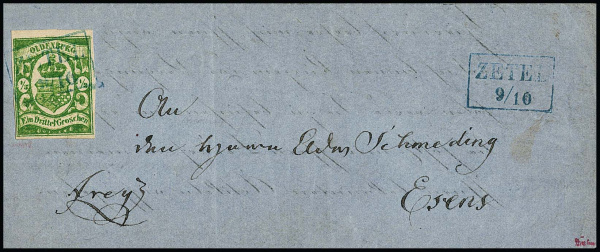 OLDENBURG
1/3 1/3
Ein Drittel Groschen
ZETEL
9/10
An
den Herrn Schmeding
frey
Esens